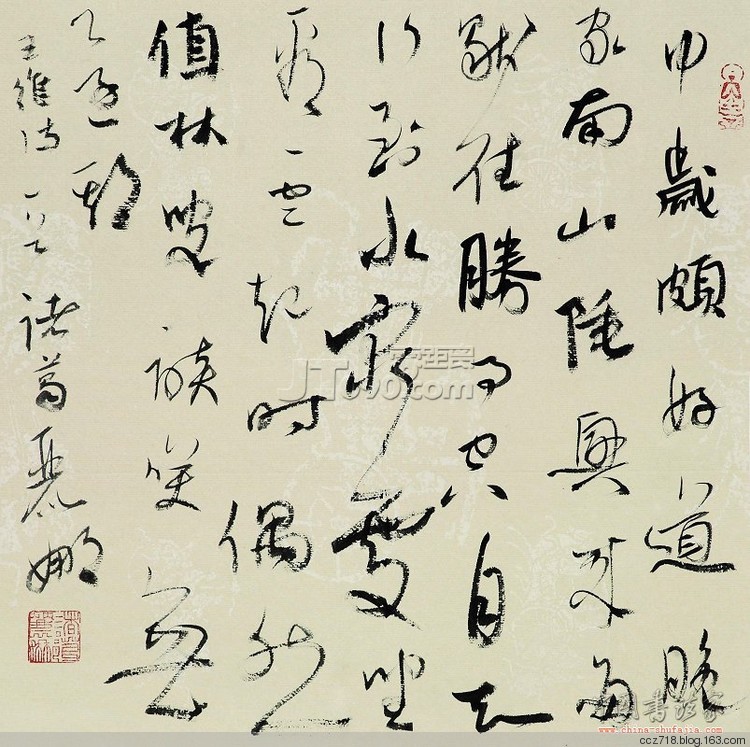 中歲頗好道晚
家南山陲興來每
獨往勝事空自知
行到水窮處坐
看雲起時偶然
值林叟談笑無
還期
王維詩一首 諸葛麗娜
www.china-shufajia.com
ccz718.blog.163.com